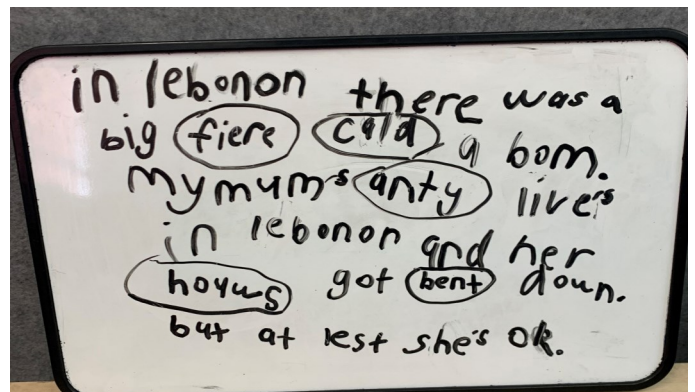 in lebonon there was a
big fiere cald a bom.
my mum's anty live's
in lebonon and her
hoyus got bent doun.
but at lest she's ok.